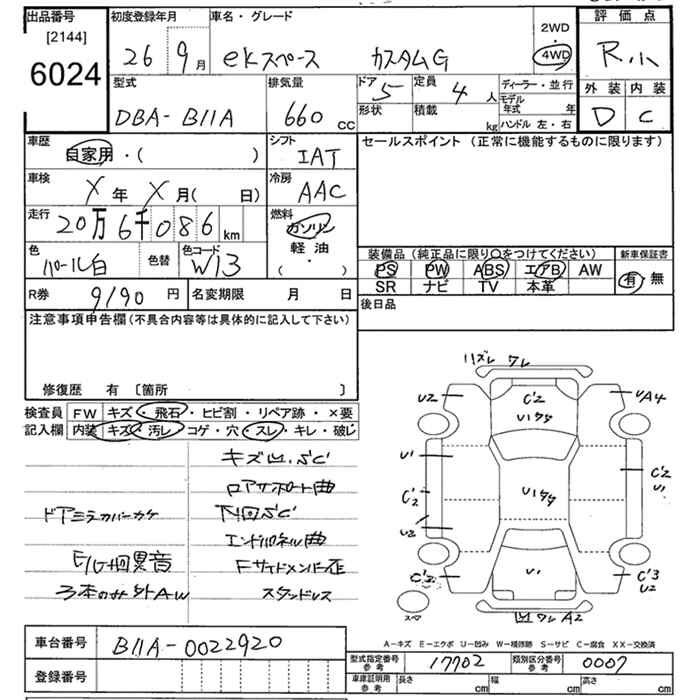 出品番号
[2144]
6024
初度登録年月
26 9月
車名・グレード
eKスペース カスタムG
2WD
・
4WD
評価点
R.小
外装 内装
D C
型式
DBA-B11A
排気量
660 cc
ドア 5
定員 4 人
形状
積載 kg
ディーラー・並行
モデル年式 年
ハンドル 左・右
車歴
自家用・( )
シフト
IAT
セールスポイント (正常に機能するものに限ります)
車検
X 年 X 月( 日)
冷房
AAC
走行
20万6千086 km
燃料
ガソリン
軽油
( ・ )
色
パール白
色替
色コード
W13
装備品 (純正品に限り○をつけてください)
PS PW ABS エアB AW
SR ナビ TV 本革
新車保証書
有・無
R券
9190 円
名変期限 月 日
後日品
注意事項申告欄 (不具合内容等は具体的に記入して下さい)
修復歴 有 〔箇所 〕
検査員記入欄
FW キズ・飛石・ヒビ割・リペア跡・×要
内装 キズ・汚レ・コゲ・穴・スレ・キレ・破レ
キズ凹.SC
コアサポート曲
ドアミラーカバーカケ
下回SC
エンドパネル曲
E/G廻異音
Fサイドメンバー歪
3本のみ外AW
スタッドレス
ハズレ ワレ
U2
C'2
U1ワク
UA4
U1
C'2
U2
U1ワク
C'2
U1
C'2
U1
C'3
U2
スペア
凹 ワレ A2
A-キズ E-エクボ U-凹み W-補修跡 S-サビ C-腐食 XX-交換済
車台番号
B11A-0022920
登録番号
型式指定番号 参考
17702
類別区分番号 参考
0007
車庫証明用 参考
長さ cm
幅 cm
高さ cm